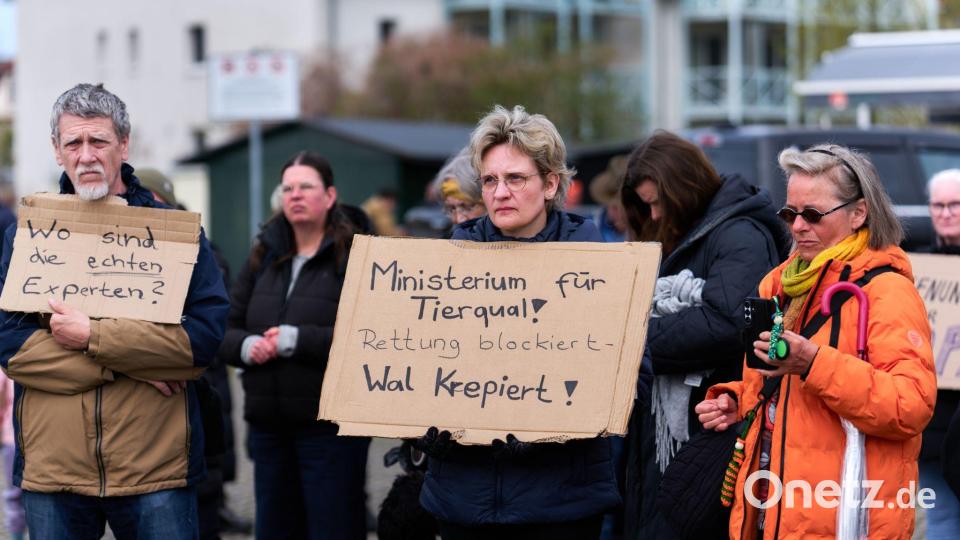 Wo sind
die echten
Experten?
Ministerium für
Tierqual!
Rettung blockiert-
Wal Krepiert!
Onetz.de